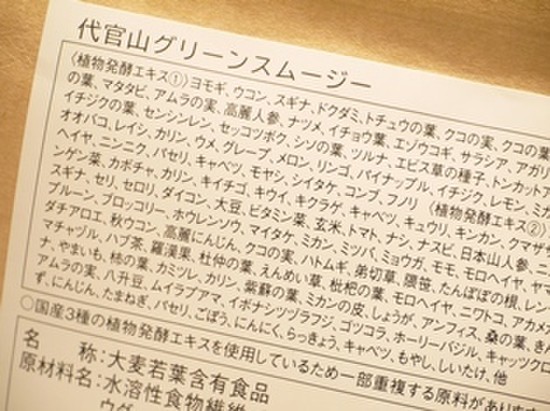 代官山グリーンスムージー
〈植物発酵エキス①〉ヨモギ、ウコン、スギナ、ドクダミ、トチュウの葉、クコの実、クコの葉
の葉、マタタビ、アムラの実、高麗人参、ナツメ、イチョウ葉、エゾウコギ、サラシア、アガリ
イチジクの葉、センシンレン、セッコツボク、シソの葉、ツルナ、エビス草の種子、トンカットア
オオバコ、レイシ、カリン、ウメ、グレープ、メロン、リンゴ、パイナップル、イチジク、レモン、ミカ
ヘイヤ、ニンニク、パセリ、キャベツ、モヤシ、シイタケ、コンブ、フノリ 〈植物発酵エキス②〉
ンゲン菜、カボチャ、カリン、キイチゴ、キウイ、キクラゲ、キャベツ、キュウリ、キンカン、クマザサ
スギナ、セリ、セロリ、ダイコン、大豆、ビタミン菜、玄米、トマト、ナシ、ナスビ、日本山人参、ニ
プルーン、ブロッコリー、ホウレンソウ、マイタケ、ミカン、ミツバ、ミョウガ、モモ、モロヘイヤ、ヤマ
ダチアロエ、秋ウコン、高麗にんじん、クコの実、ハトムギ、弟切草、隈笹、たんぽぽの根、レン
マチャヅル、ハブ茶、羅漢果、杜仲の葉、えんめい草、枇杷の葉、モロヘイヤ、ニワトコ、アカメ
ナ、やまいも、柿の葉、カミツレ、カリン、紫蘇の葉、ミカンの皮、しょうが、アンフィス、桑の葉、きん
アムラの実、八升豆、ムイラプアマ、イボナシツヅラフジ、ゴツコラ、ホーリーバジル、キャッツクロ
ず、にんじん、たまねぎ、パセリ、ごぼう、にんにく、らっきょう、キャベツ、もやし、しいたけ、他
○国産3種の植物発酵エキスを使用しているため一部重複する原料があります
名 称:大麦若葉含有食品
原材料名:水溶性食物繊維